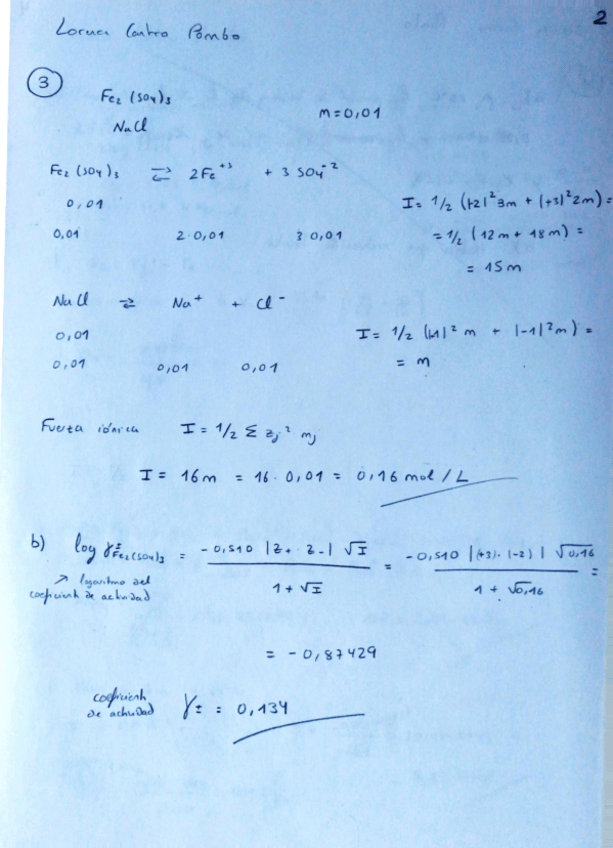 2
Lorena Castro Pombo
3
Fe2(SO4)3
NaCl m=0,01
Fe2(SO4)3 ⇄ 2Fe+3 + 3SO4-2
0,01
0,01 2·0,01 3·0,01
I= 1/2 (|-2|² 3m + |+3|² 2m) =
= 1/2 (12m + 18m) =
= 15m
NaCl ⇄ Na+ + Cl-
0,01
0,01 0,01 0,01
I= 1/2 (|1|² m + |-1|² m) =
= m
Fuerza iónica I = 1/2 Σ zj² mj
I = 16m = 16·0,01 = 0,16 mol/L
b) log γ±Fe2(SO4)3 = -0,510 |z+·z-| √I / 1+√I = -0,510 |(+3)·(-2)| √0,16 / 1+√0,16 =
↗ logaritmo del
coeficiente de actividad
= -0,87429
coeficiente
de actividad γ± = 0,134